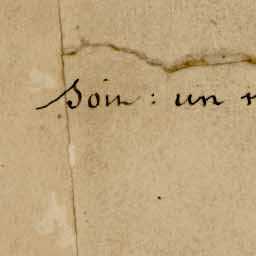 Soin : un